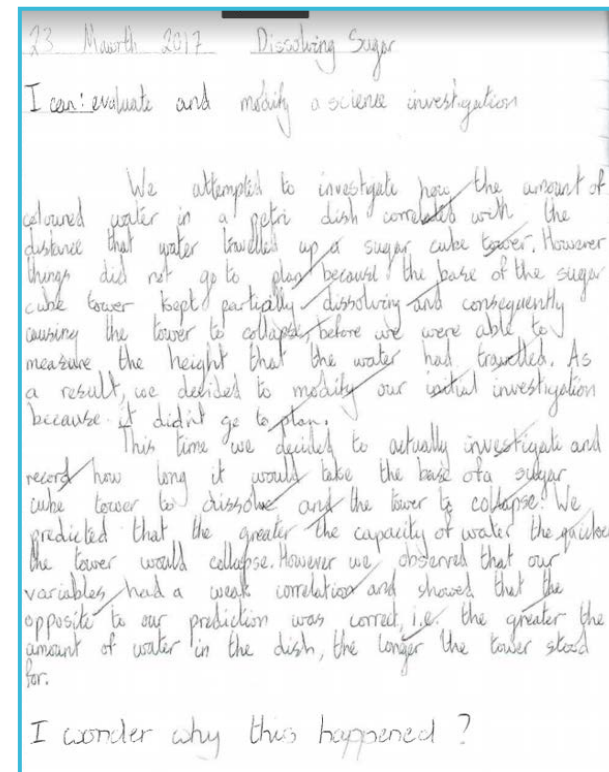 23 Mawrth 2017 Dissolving Sugar
I can: evaluate and modify a science investigation
We attempted to investigate how the amount of
coloured water in a petri dish correlated with the
distance that water travelled up a sugar cube tower. However
things did not go to plan because the base of the sugar
cube tower kept partially dissolving and consequently
causing the tower to collapse, before we were able to
measure the height that the water had travelled. As
a result, we decided to modify our initial investigation
because it didn't go to plan.
This time we decided to actually investigate and
record how long it would take the base of a sugar
cube tower to dissolve and the tower to collapse. We
predicted that the greater the capacity of water the quicker
the tower would collapse. However we observed that our
variables had a weak correlation and showed that the
opposite to our prediction was correct, i.e. the greater the
amount of water in the dish, the longer the tower stood
for.
I wonder why this happened ?